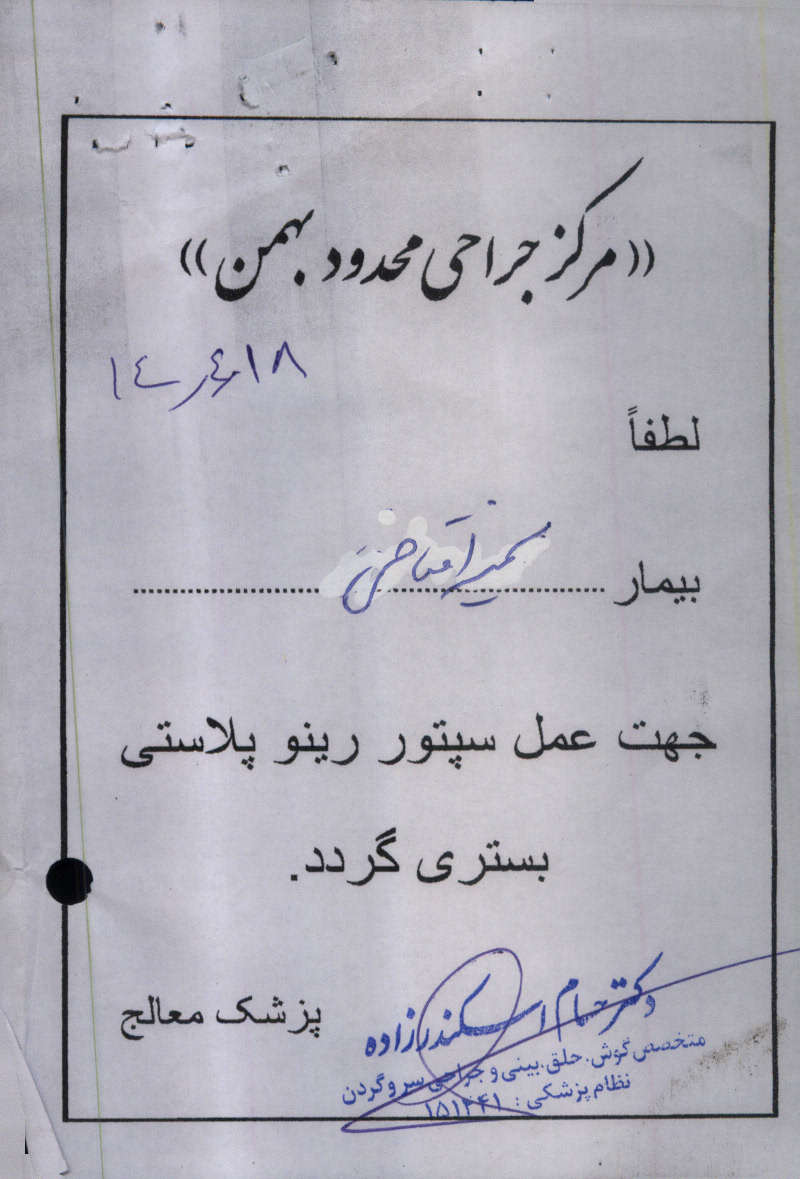 «مرکز جراحی محدود بهمن»
لطفاً
بیمار
جهت عمل سپتور رینو پلاستی
بستری گردد.
پزشک معالج
دکتر حسام اسکندرزاده
متخصص گوش، حلق، بینی و جراحی سر و گردن
نظام پزشکی: ۱۵۱۲۴۱